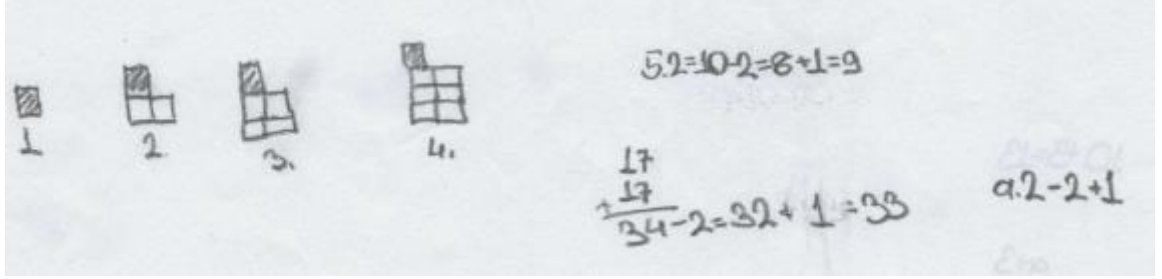 1 2 3. 4.
5.2=10-2=8+1=9
17
+17
34-2=32+1=33
a.2-2+1